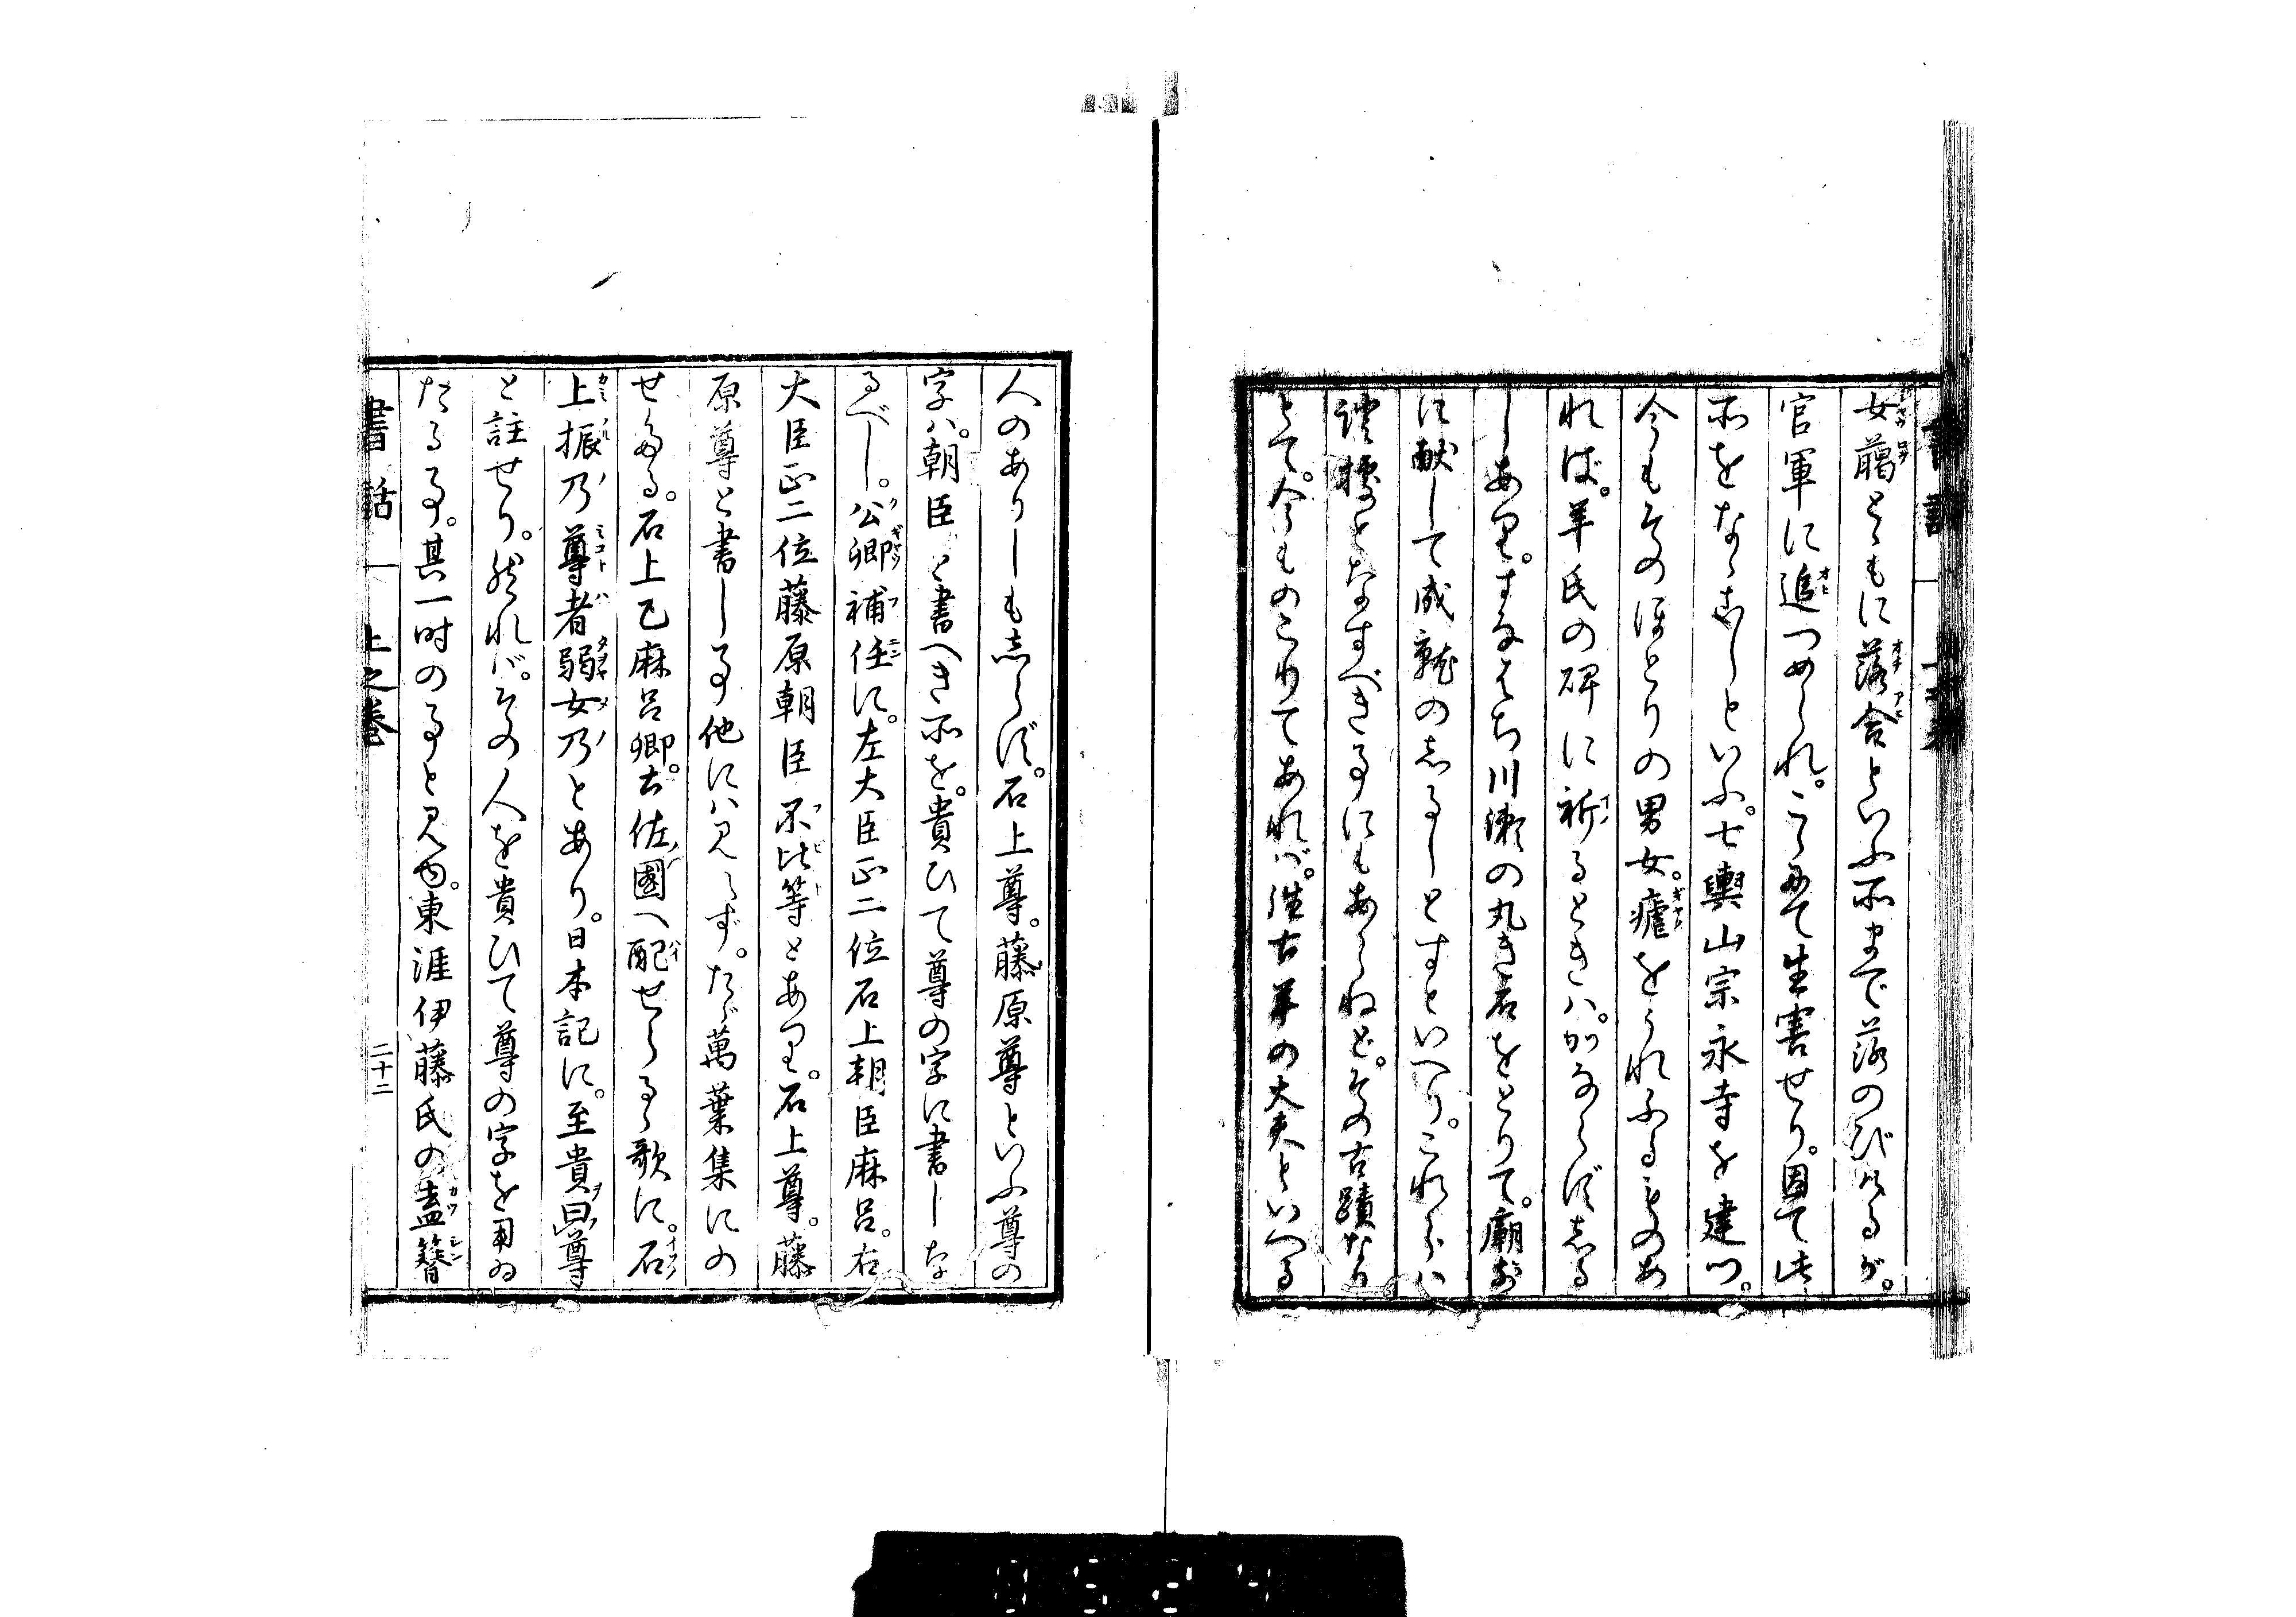 女﨟ともに落合といふ所まで落のびけるが。
官軍に追つめられ。こゝにて生害せり。因て此
所をなゝこしといふ。七輿山宗永寺を建つ。
今もそのほとりの男女。瘧をうれふるものあ
れば。羊氏の碑に祈るときハ。かならずしる
しあり。すなはち川瀬の丸き石をとりて。廟前
に献して成就のしるしとすといへり。これらハ
證據となすべき事にもあらねど。その古蹟なり
とて。今ものこりてあれバ。往古羊の大夫といへる
人のありしもしらず。石上尊。藤原尊といふ尊の
字ハ。朝臣と書へき所を。貴ひて尊の字に書しな
るべし。公卿補任に。左大臣正二位石上朝臣麻呂。右
大臣正二位藤原朝臣不比等とあり。石上尊。藤
原尊と書し事他にハ見へず。たゞ萬葉集にの
せたる。石上乙麻呂卿。土佐國へ配せらるゝ歌に。石
上振乃尊者弱女乃とあり。日本記に。至貴曰尊
と註せり。然れバ。その人を貴ひて尊の字を用ゐ
たる事。其一時の事と見ゆ。東涯伊藤氏の盍簪
書話 上之巻 二十二